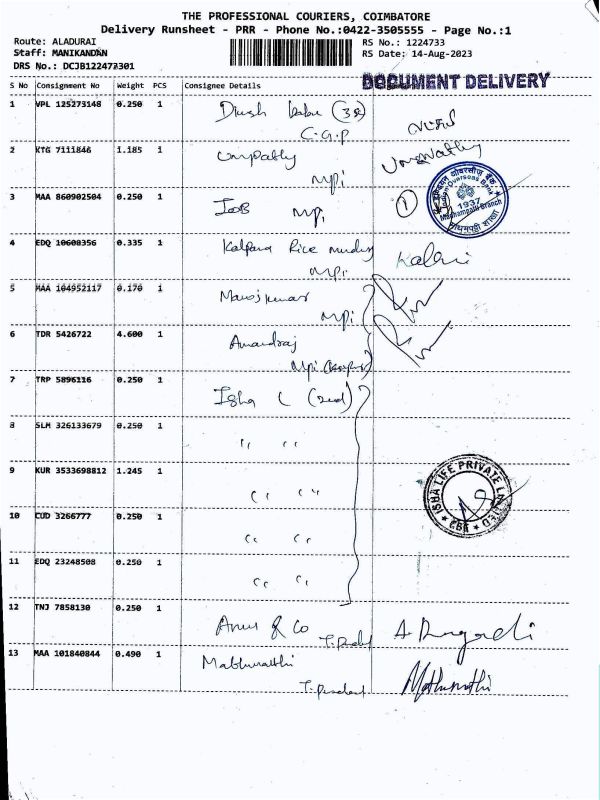 THE PROFESSIONAL COURIERS, COIMBATORE
Delivery Runsheet - PRR - Phone No.:0422-3505555 - Page No.:1
Route: ALADURAI
RS No.: 1224733
Staff: MANIKANDAN
RS Date: 14-Aug-2023
DRS No.: DCJB122473301
S No Consignment No Weight PCS Consignee Details
DOCUMENT DELIVERY
1 VPL 125273148 0.250 1
C.G.P
2 KTG 7111846 1.185 1 Umpathy
Mpi
3 MAA 860902504 0.250 1 IOB Mpi
1
Indian Overseas Bank
1937
4 EDQ 10600356 0.335 1 Kalpana Rice
Mpi
5 MAA 104952117 0.170 1 Manojkumar
Mpi
6 TDR 5426722 4.600 1 Anandraj
Mpi
7 TRP 5896116 0.250 1 Isha
8 SLM 326133679 0.250 1 " "
9 KUR 3533698812 1.245 1 " "
ISHA LIFE PRIVATE LIMITED
10 CUD 3266777 0.250 1 " "
11 EDQ 23248508 0.250 1 " "
12 TNJ 7858130 0.250 1 & Co
13 MAA 101840844 0.490 1 Mathumathi
Mathumathi